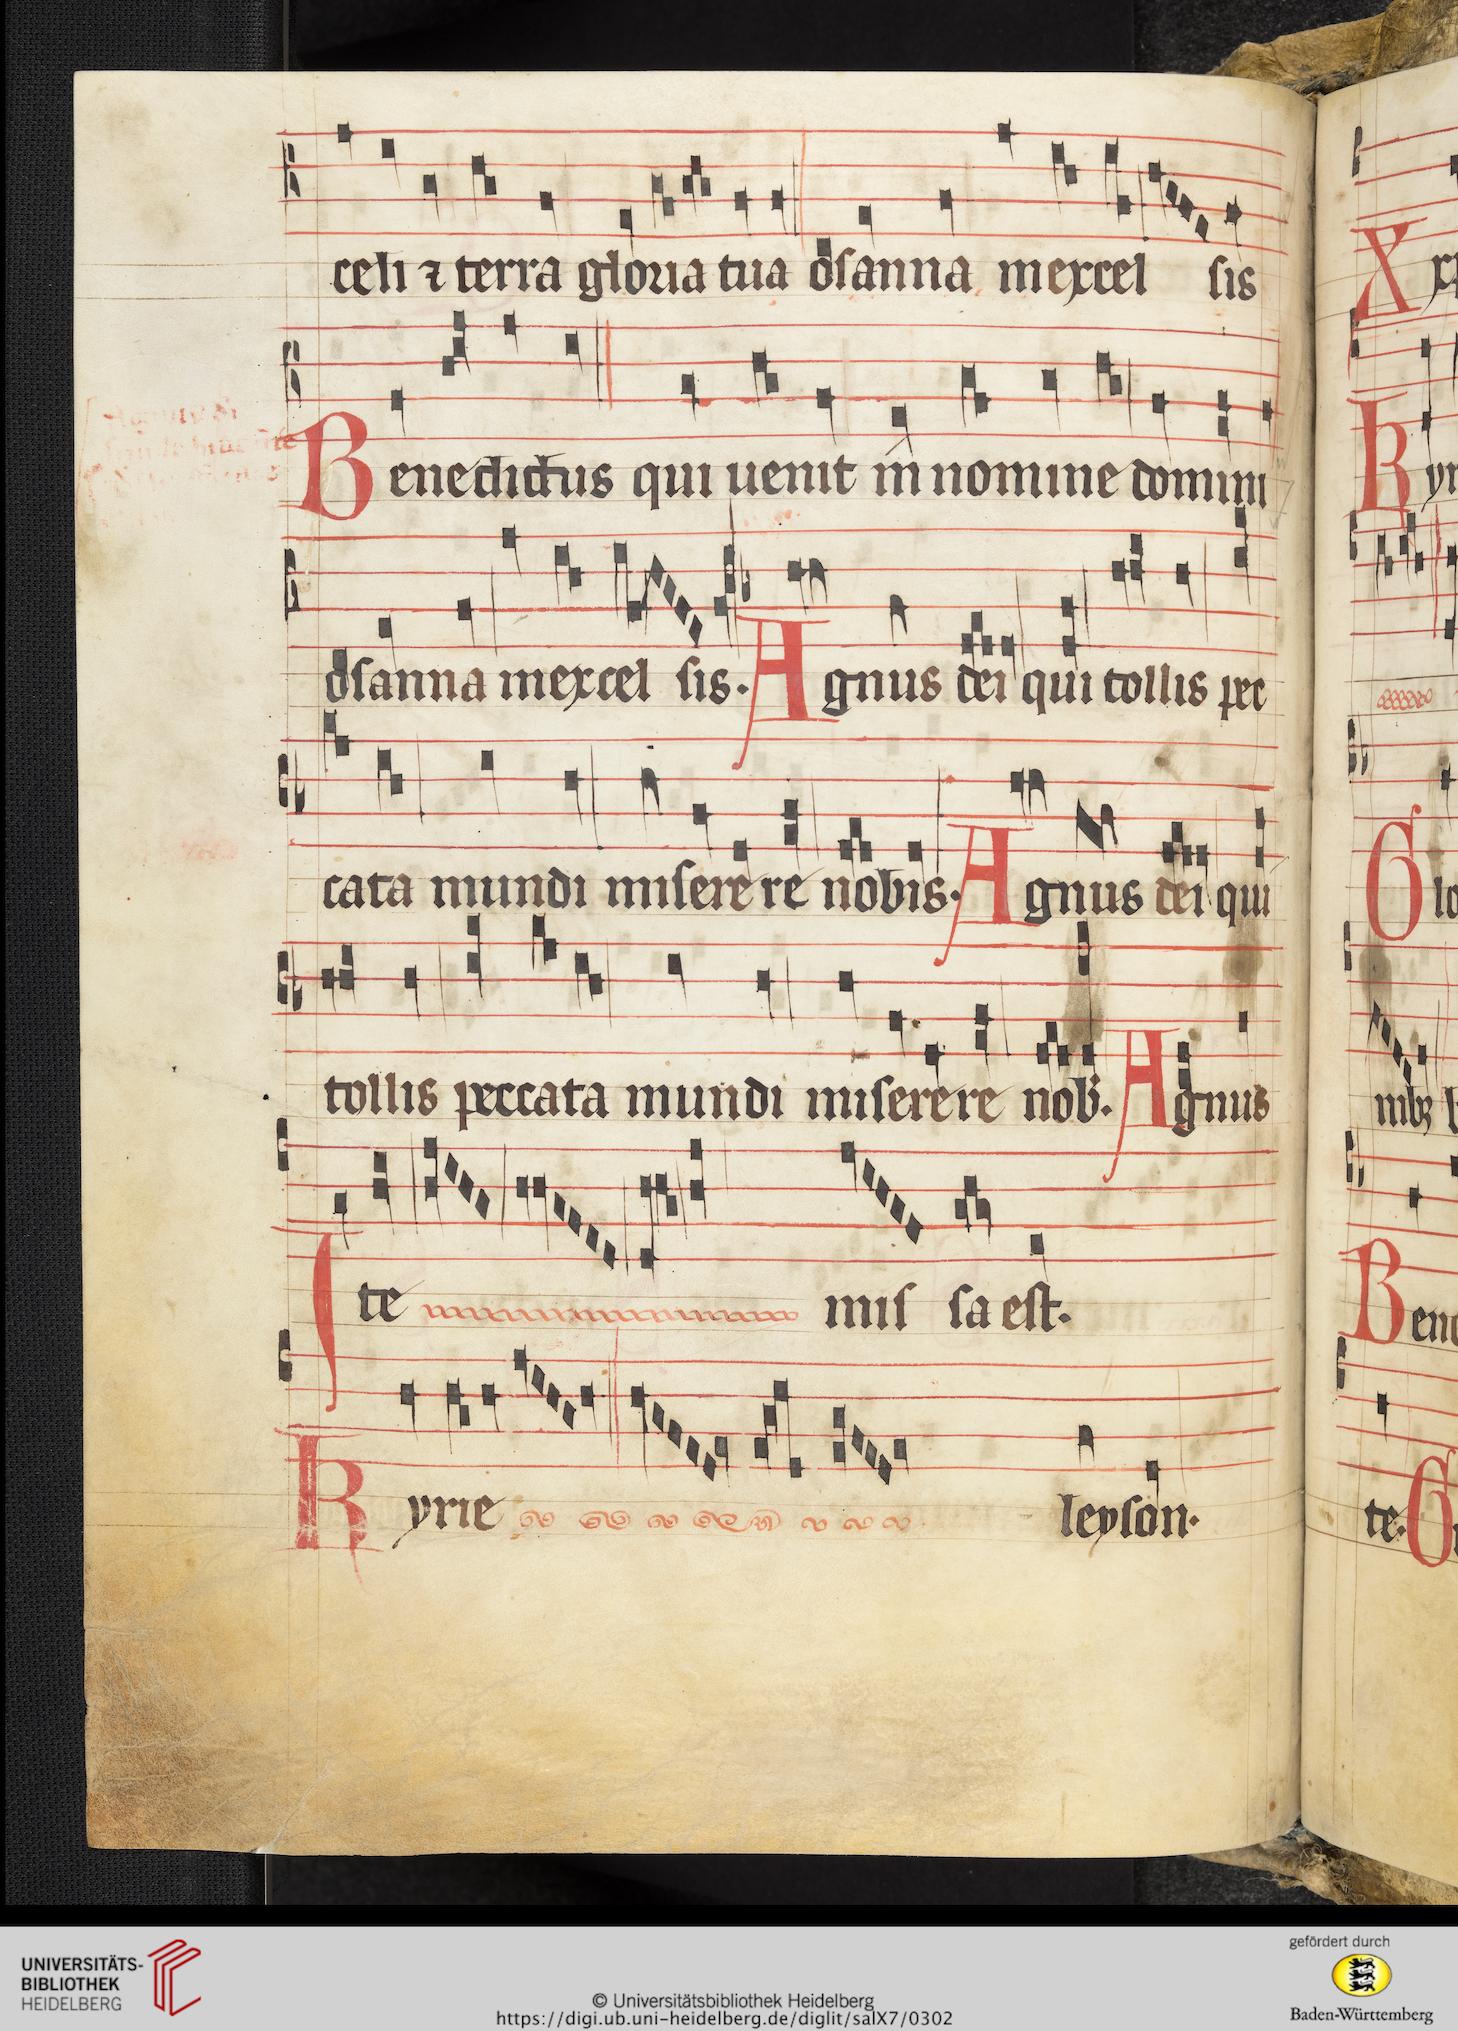 celi ⁊ terra gloria tua osanna in excel sis
Benedictus qui uenit in nomine domini
osanna in excel sis. Agnus dei qui tollis pec
cata mundi miserere nobis. Agnus dei qui
tollis peccata mundi miserere nob. Agnus
Ite mis sa est.
Kyrie leyson.
UNIVERSITÄTS-
BIBLIOTHEK
HEIDELBERG
© Universitätsbibliothek Heidelberg
https://digi.ub.uni-heidelberg.de/diglit/salX7/0302
gefördert durch
Baden-Württemberg